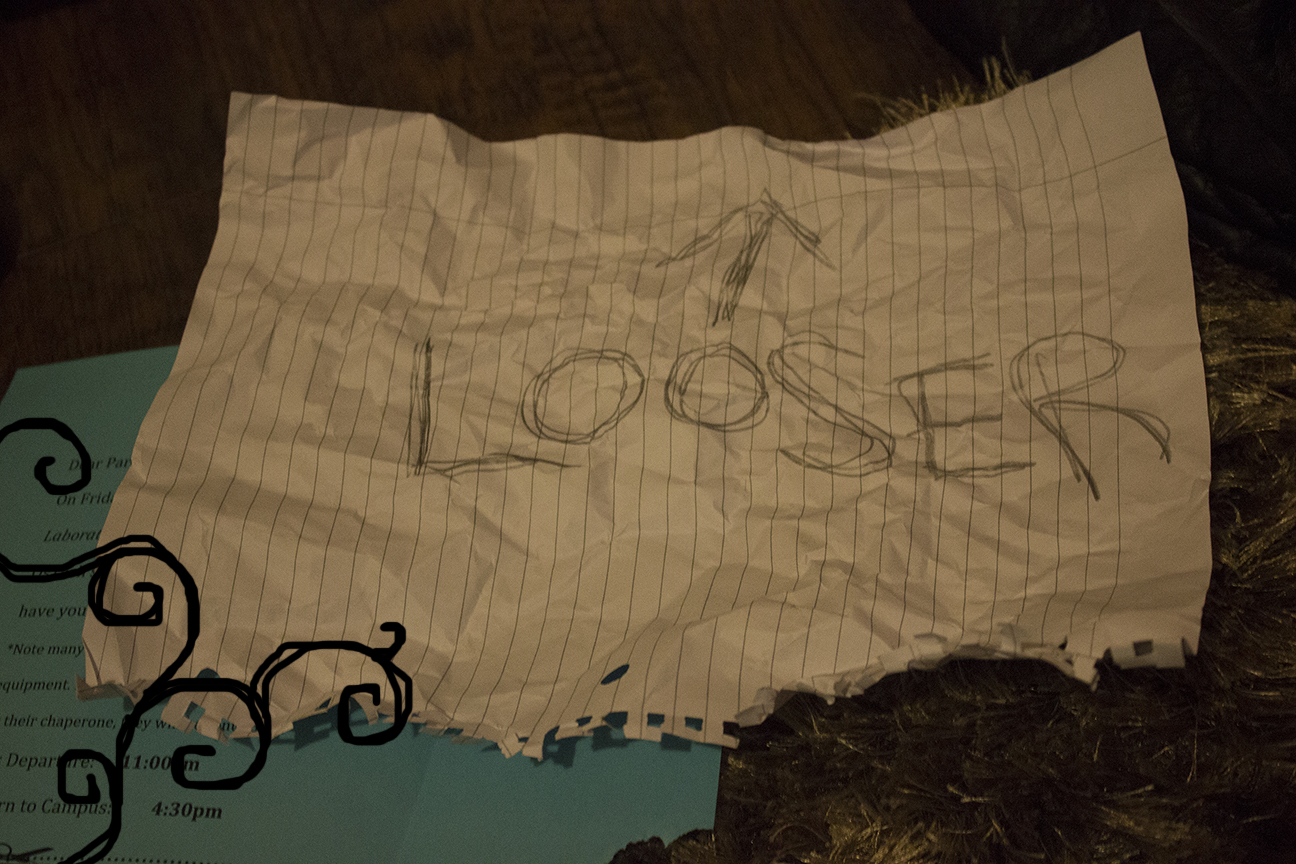 LOOSER
Dear Par
On Frida
Laborat
have you
*Note many
equipment.
their chaperone, they
Departure: 11:00am
rn to Campus: 4:30pm